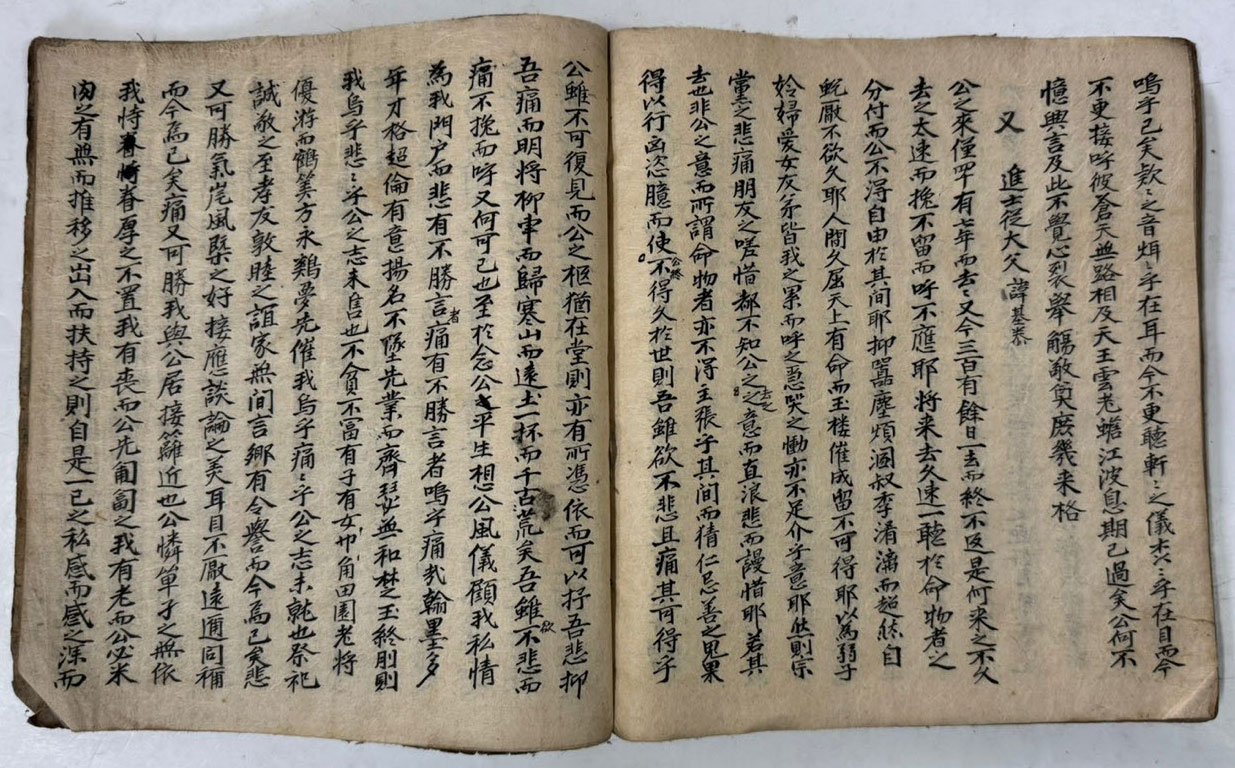 嗚乎已矣欵〻之音烱〻乎在耳而今不更聴軒〻之儀杰〻乎在目而今
不更接呼彼蒼天無路相及天王雲老蟾江波息期已過矣公何不
憶興言及此不覺心裂擧觴敬奠庶幾来格
又 進士從大父諱基泰
公之來僅四十有七年而去〻又今三百有餘日一去而終不返是何来之不久
去之太速而挽不留而呼不應耶将来去久速一聴於命物者之
分付而公不淂自由於其間耶抑囂塵煩溷叔季淆漓而超然自
蛻厭不欲久耶人間久屈天上有命而玉楼催成留不可得耶以為弱子
姈婦愛女友弟皆我之累而呼之慂哭之慟亦不足介乎意耶然則宗
黨之悲痛朋友之嗟惜都不知公之去之之意而直浪悲而謾惜耶若其
去也非公之意而所謂命物者亦不得主張乎其間而猜仁忌善之鬼果
得以行凶恣臆而使公終不得久於世則吾雖欲不悲且痛其可得乎
公雖不可復見而公之柩猶在堂則亦有所憑依而可以抒吾悲抑
吾痛而明将柳車而歸寒山而遠土一抔而千古荒矣吾雖欲不悲而
痛不挽而呼又何可已也至於念公平生想公風儀顧我私情
為我門户而悲有不勝言者痛有不勝言者嗚乎痛㦲翰墨多
年才格超倫有意揚名不墜先業而齊瑟無和楚玉終刖則
我烏乎悲〻乎公之志未售也不貧不富有子有女丱角田園老将
優游而鶴筭方永鷄夢先催我烏乎痛〻乎公之志未就也祭祀
誠敬之至孝友敦睦之誼家無间言鄉有令譽而今為已矣悲
又可勝氣岸風槩之好接應談論之美耳目不厭遠邇同稱
而今為已矣痛又可勝我與公居接籬近也公憐单孑之無依
我恃眷厚之不置我有喪而公先匍匐之我有老而公必米
肉之有無而推移之出入而扶持之則自是一己之私感而感之深而